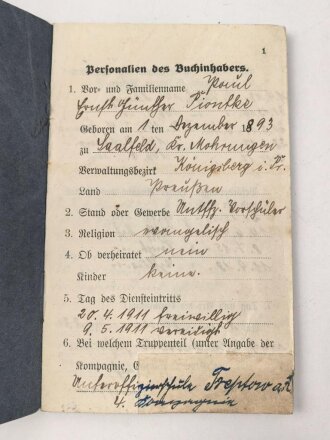 1
Personalien des Buchinhabers.
1. Vor- und Familienname Paul
Ernst Günther Piontke
Geboren am 1 ten Dezember 1893
zu Saalfeld, Kr. Mohrungen
Verwaltungsbezirk Königsberg i. Pr.
Land Preußen
2. Stand oder Gewerbe Untffz. Vorschüler
3. Religion evangelisch
4. Ob verheiratet nein
Kinder keine.
5. Tag des Diensteintritts
20. 4. 1911 freiwillig
9. 5. 1911 vereidigt
6. Bei welchem Truppenteil (unter Angabe der
Kompagnie,
Unteroffizierschule Treptow a. R.
4. Kompagnie